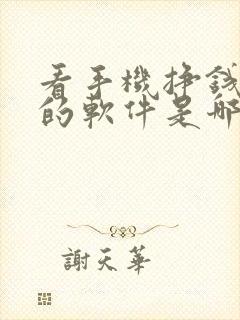 看手機挣錢
的軟件是哪
謝天華